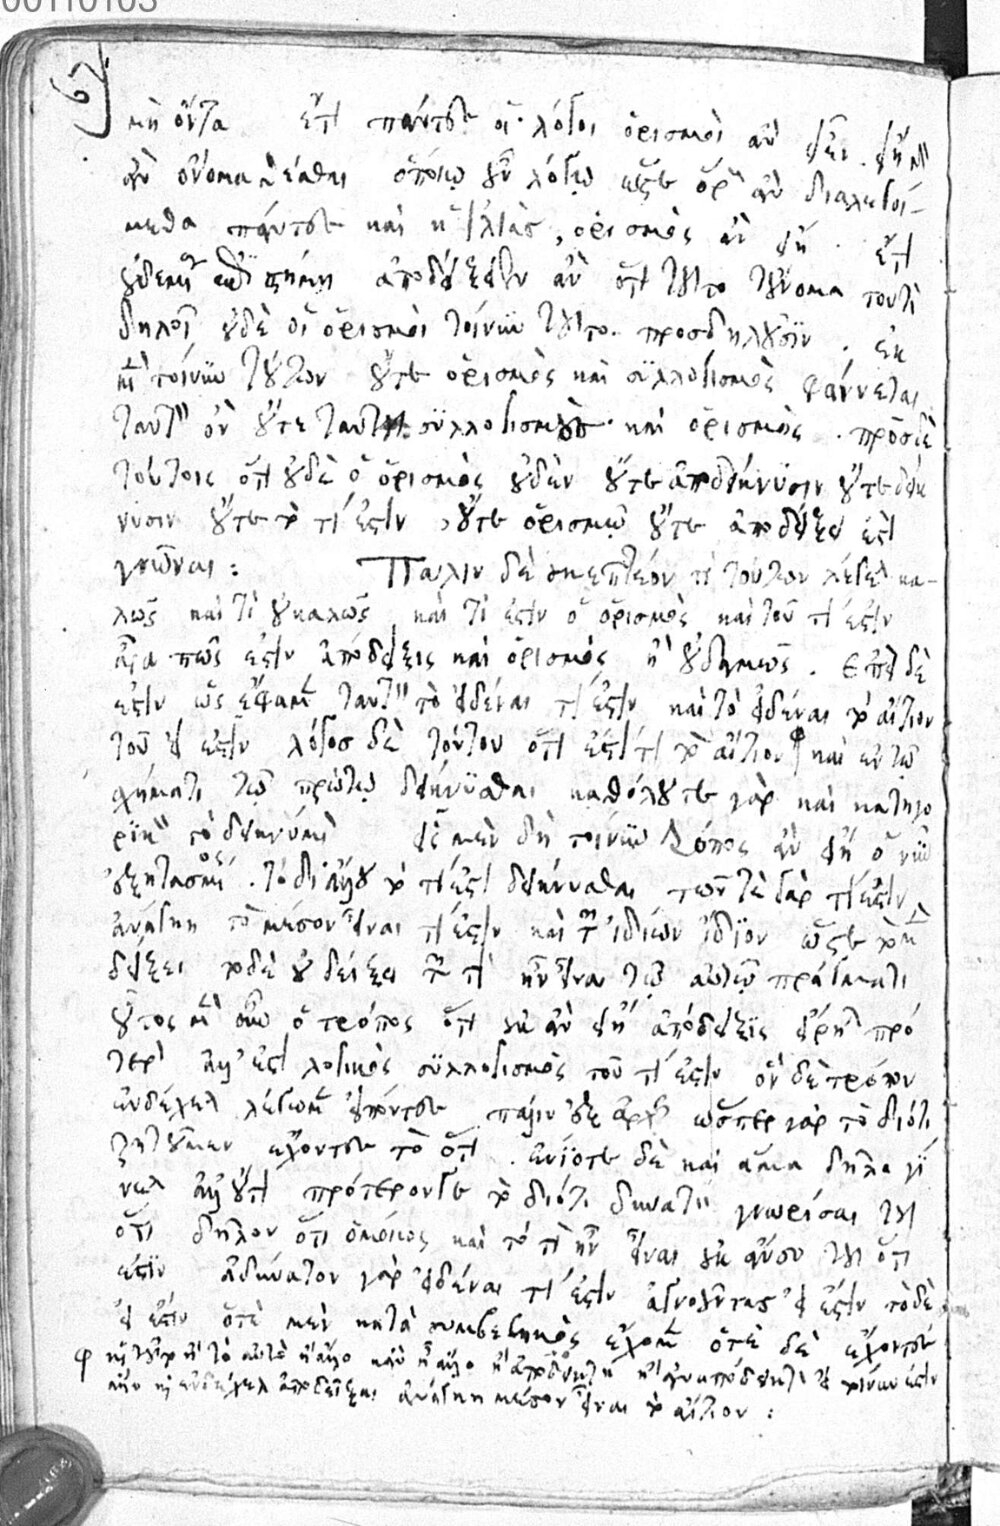 μὴ ὄντα ἔτι πάντες οἱ λόγοι ὁρισμοὶ ἂν εἶεν. εἴη γὰρ
ἂν ὄνομα θέσθαι ὁποιῳοῦν λόγῳ ὥστε ὅροις ἂν διαλεγοί-
μεθα πάντες καὶ ἡ ἰλιὰς, ὁρισμὸς ἂν εἴη. ἔτι
οὐδεμία ἐπιστήμη ἀποδείξειεν ἂν ὅτι τοῦτο τοὔνομα τουτὶ
δηλοῖ οὐδὲ οἱ ὁρισμοὶ τοίνυν τοῦτο προσδηλοῦσιν. ἐκ
μὲν τοίνυν τούτων οὔτε ὁρισμὸς καὶ συλλογισμὸς φαίνεται
ταυτὸν ὂν οὔτε ταυτοῦ συλλογισμὸς καὶ ὁρισμὸς. πρὸς δὲ
τούτοις ὅτι οὐδὲ ὁ ὁρισμὸς οὐδὲν οὔτε ἀποδείκνυσιν οὔτε δείκ
νυσιν οὔτε τὸ τί ἐστιν, οὔτε ὁρισμῷ οὔτε ἀποδείξει ἐστὶ
γνῶναι: Πάλιν δὲ σκεπτέον τί τούτων λέγεται κα-
λῶς καὶ τί οὐ καλῶς καὶ τί ἐστιν ὁ ὁρισμὸς καὶ τοῦ τί ἐστιν
ἆρα πῶς ἐστιν ἀπόδειξις καὶ ὁρισμὸς ἢ οὐδαμῶς. ἐπεὶ δὲ
ἐστιν ὡς ἔφαμεν ταυτὸν τὸ εἰδέναι τί ἐστιν καὶ τὸ εἰδέναι τὸ αἴτιον
τοῦ εἰ ἐστιν λόγος δὲ τούτου ὅτι ἐστί τι τὸ αἴτιον φ καὶ ἐν τῷ
σχήματι τῷ πρώτῳ δείκνυσθαι καθόλου τε γὰρ καὶ κατηγο
ρικὸν τὸ δεικνύμενον εἷς μὲν δὴ τοίνυν τρόπος ἂν εἴη ὁ νῦν
ἐξητασμένος. τὸ δι' ἄλλου τὸ τί ἐστι δείκνυσθαι τῶν τε γὰρ τί ἐστιν
ἀνάγκη τὸ μέσον εἶναι τί ἐστιν καὶ τῶν ἰδίων ἴδιον ὥστε τὸ μὲν
δείξει τὸ δὲ οὐ δείξει τῶν τί ἦν εἶναι τῷ αὐτῷ πράγματι
οὗτος μὲν οὖν ὁ τρόπος ὅτι οὐκ ἂν εἴη ἀπόδειξις εἴρηται πρό
τερον ἀλλ' ἐστι λογικὸς συλλογισμὸς τοῦ τί ἐστιν ὃν δὲ τρόπον
ἐνδέχεται λέγωμεν εἰπόντες πάλιν ἐξ ἀρχῆς ὥσπερ γὰρ τὸ διότι
ζητοῦμεν ἔχοντες τὸ ὅτι. ἐνίοτε δὲ καὶ ἅμα δῆλα γί
νεται ἀλλ' οὔτι πρότερόν γε τὸ διότι δυνατὸν γνωρίσαι τοῦ
ὅτι δῆλον ὅτι ὁμοίως καὶ τὸ τί ἦν εἶναι οὐκ ἄνευ τοῦ ὅτι
ἐστίν ἀδύνατον γὰρ εἰδέναι τί ἐστιν ἀγνοοῦντας εἰ ἐστιν τὸ δὲ
εἰ ἐστιν ὁτὲ μὲν κατὰ συμβεβηκὸς ἔχομεν ὁτὲ δὲ ἔχοντες
φ καὶ τοῦτο ἢ τὸ αὐτὸ ἢ ἄλλο κἂν ᾖ ἄλλο ἢ ἀποδεικτὸν ἢ ἀναπόδεικτον εἰ τοίνυν ἐστὶν
ἄλλο καὶ ἐνδέχεται ἀποδεῖξαι ἀνάγκη μέσον εἶναι τὸ αἴτιον: